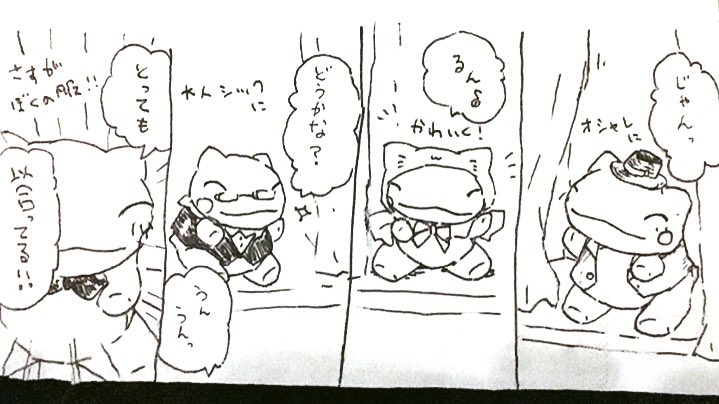 じゃんっ
オシャレに
るんっ
かわいく!
どうかな?
シックに
うん
うんっ
とっても
似合ってる!!
さすが
ぼくの服!!